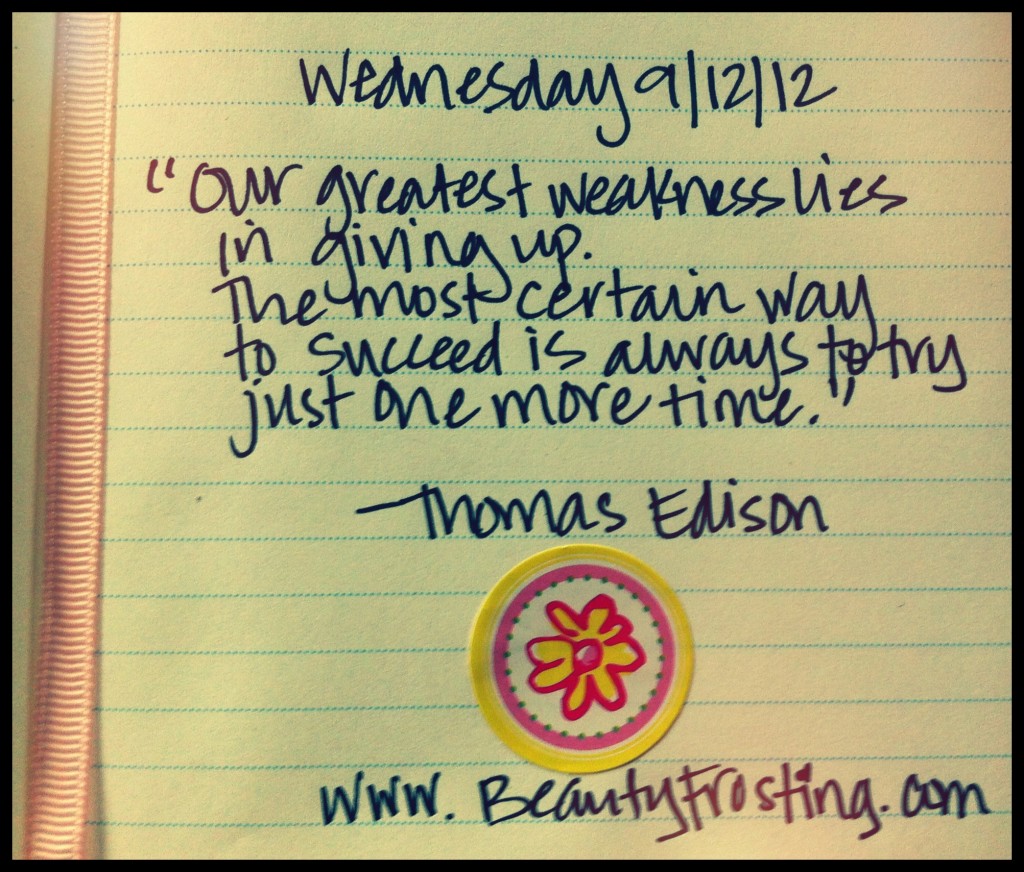 Wednesday 9/12/12
"Our greatest weakness lies
in giving up.
The most certain way
to succeed is always to try
just one more time."
—Thomas Edison
www.BeautyFrosting.com